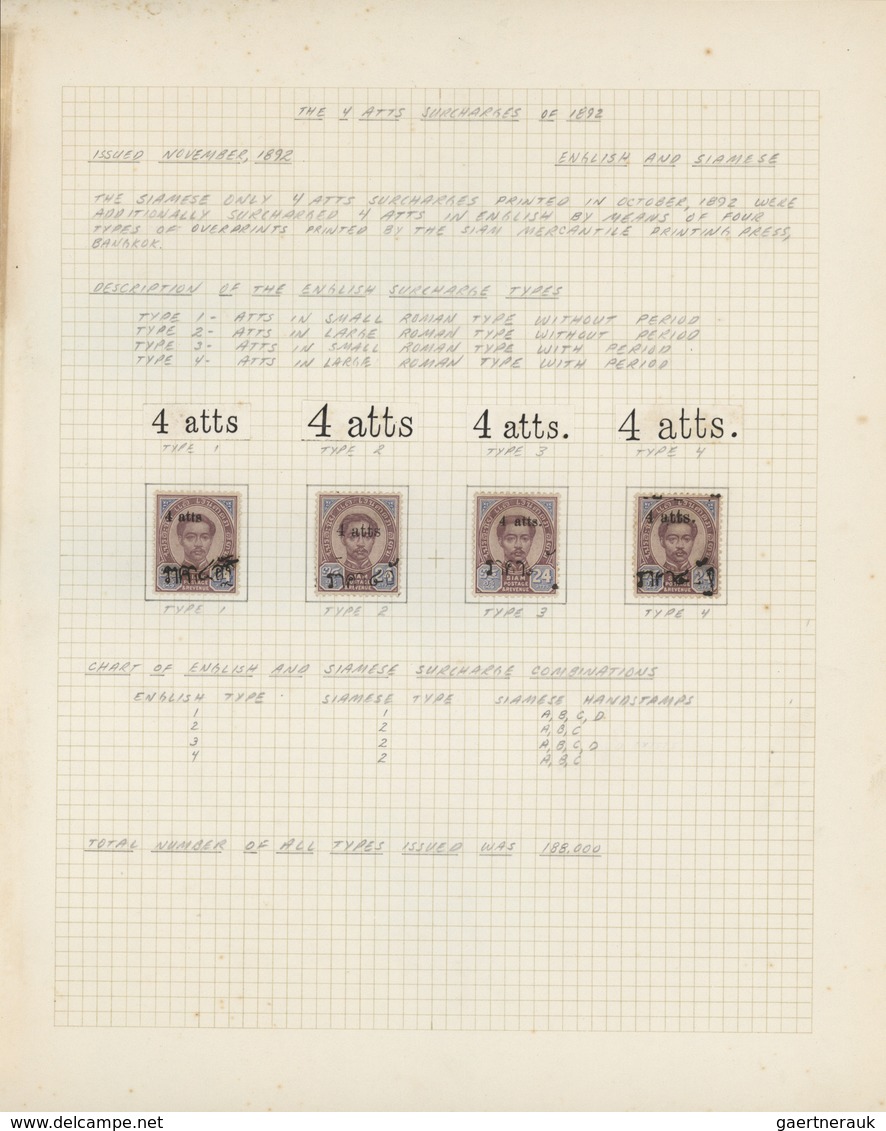 THE 4 ATTS SURCHARGES OF 1892
ISSUED NOVEMBER, 1892 ENGLISH AND SIAMESE
THE SIAMESE ONLY 4 ATTS SURCHARGES PRINTED IN OCTOBER, 1892 WERE
ADDITIONALLY SURCHARGED 4 ATTS IN ENGLISH BY MEANS OF FOUR
TYPES OF OVERPRINTS PRINTED BY THE SIAM MERCANTILE PRINTING PRESS,
BANGKOK.
DESCRIPTION OF THE ENGLISH SURCHARGE TYPES
TYPE 1- ATTS IN SMALL ROMAN TYPE WITHOUT PERIOD
TYPE 2- ATTS IN LARGE ROMAN TYPE WITHOUT PERIOD
TYPE 3- ATTS IN SMALL ROMAN TYPE WITH PERIOD
TYPE 4- ATTS IN LARGE ROMAN TYPE WITH PERIOD
4 atts 4 atts 4 atts. 4 atts.
TYPE 1 TYPE 2 TYPE 3 TYPE 4
4 atts 4 atts 4 atts. 4 atts.
24
SIAM
POSTAGE
& REVENUE
TYPE 1 TYPE 2 TYPE 3 TYPE 4
CHART OF ENGLISH AND SIAMESE SURCHARGE COMBINATIONS
ENGLISH TYPE SIAMESE TYPE SIAMESE HANDSTAMPS
1 1 A, B, C, D
2 2 A, B, C
3 2 A, B, C, D
4 2 A, B, C
TOTAL NUMBER OF ALL TYPES ISSUED WAS 188,000
gaertnerauk